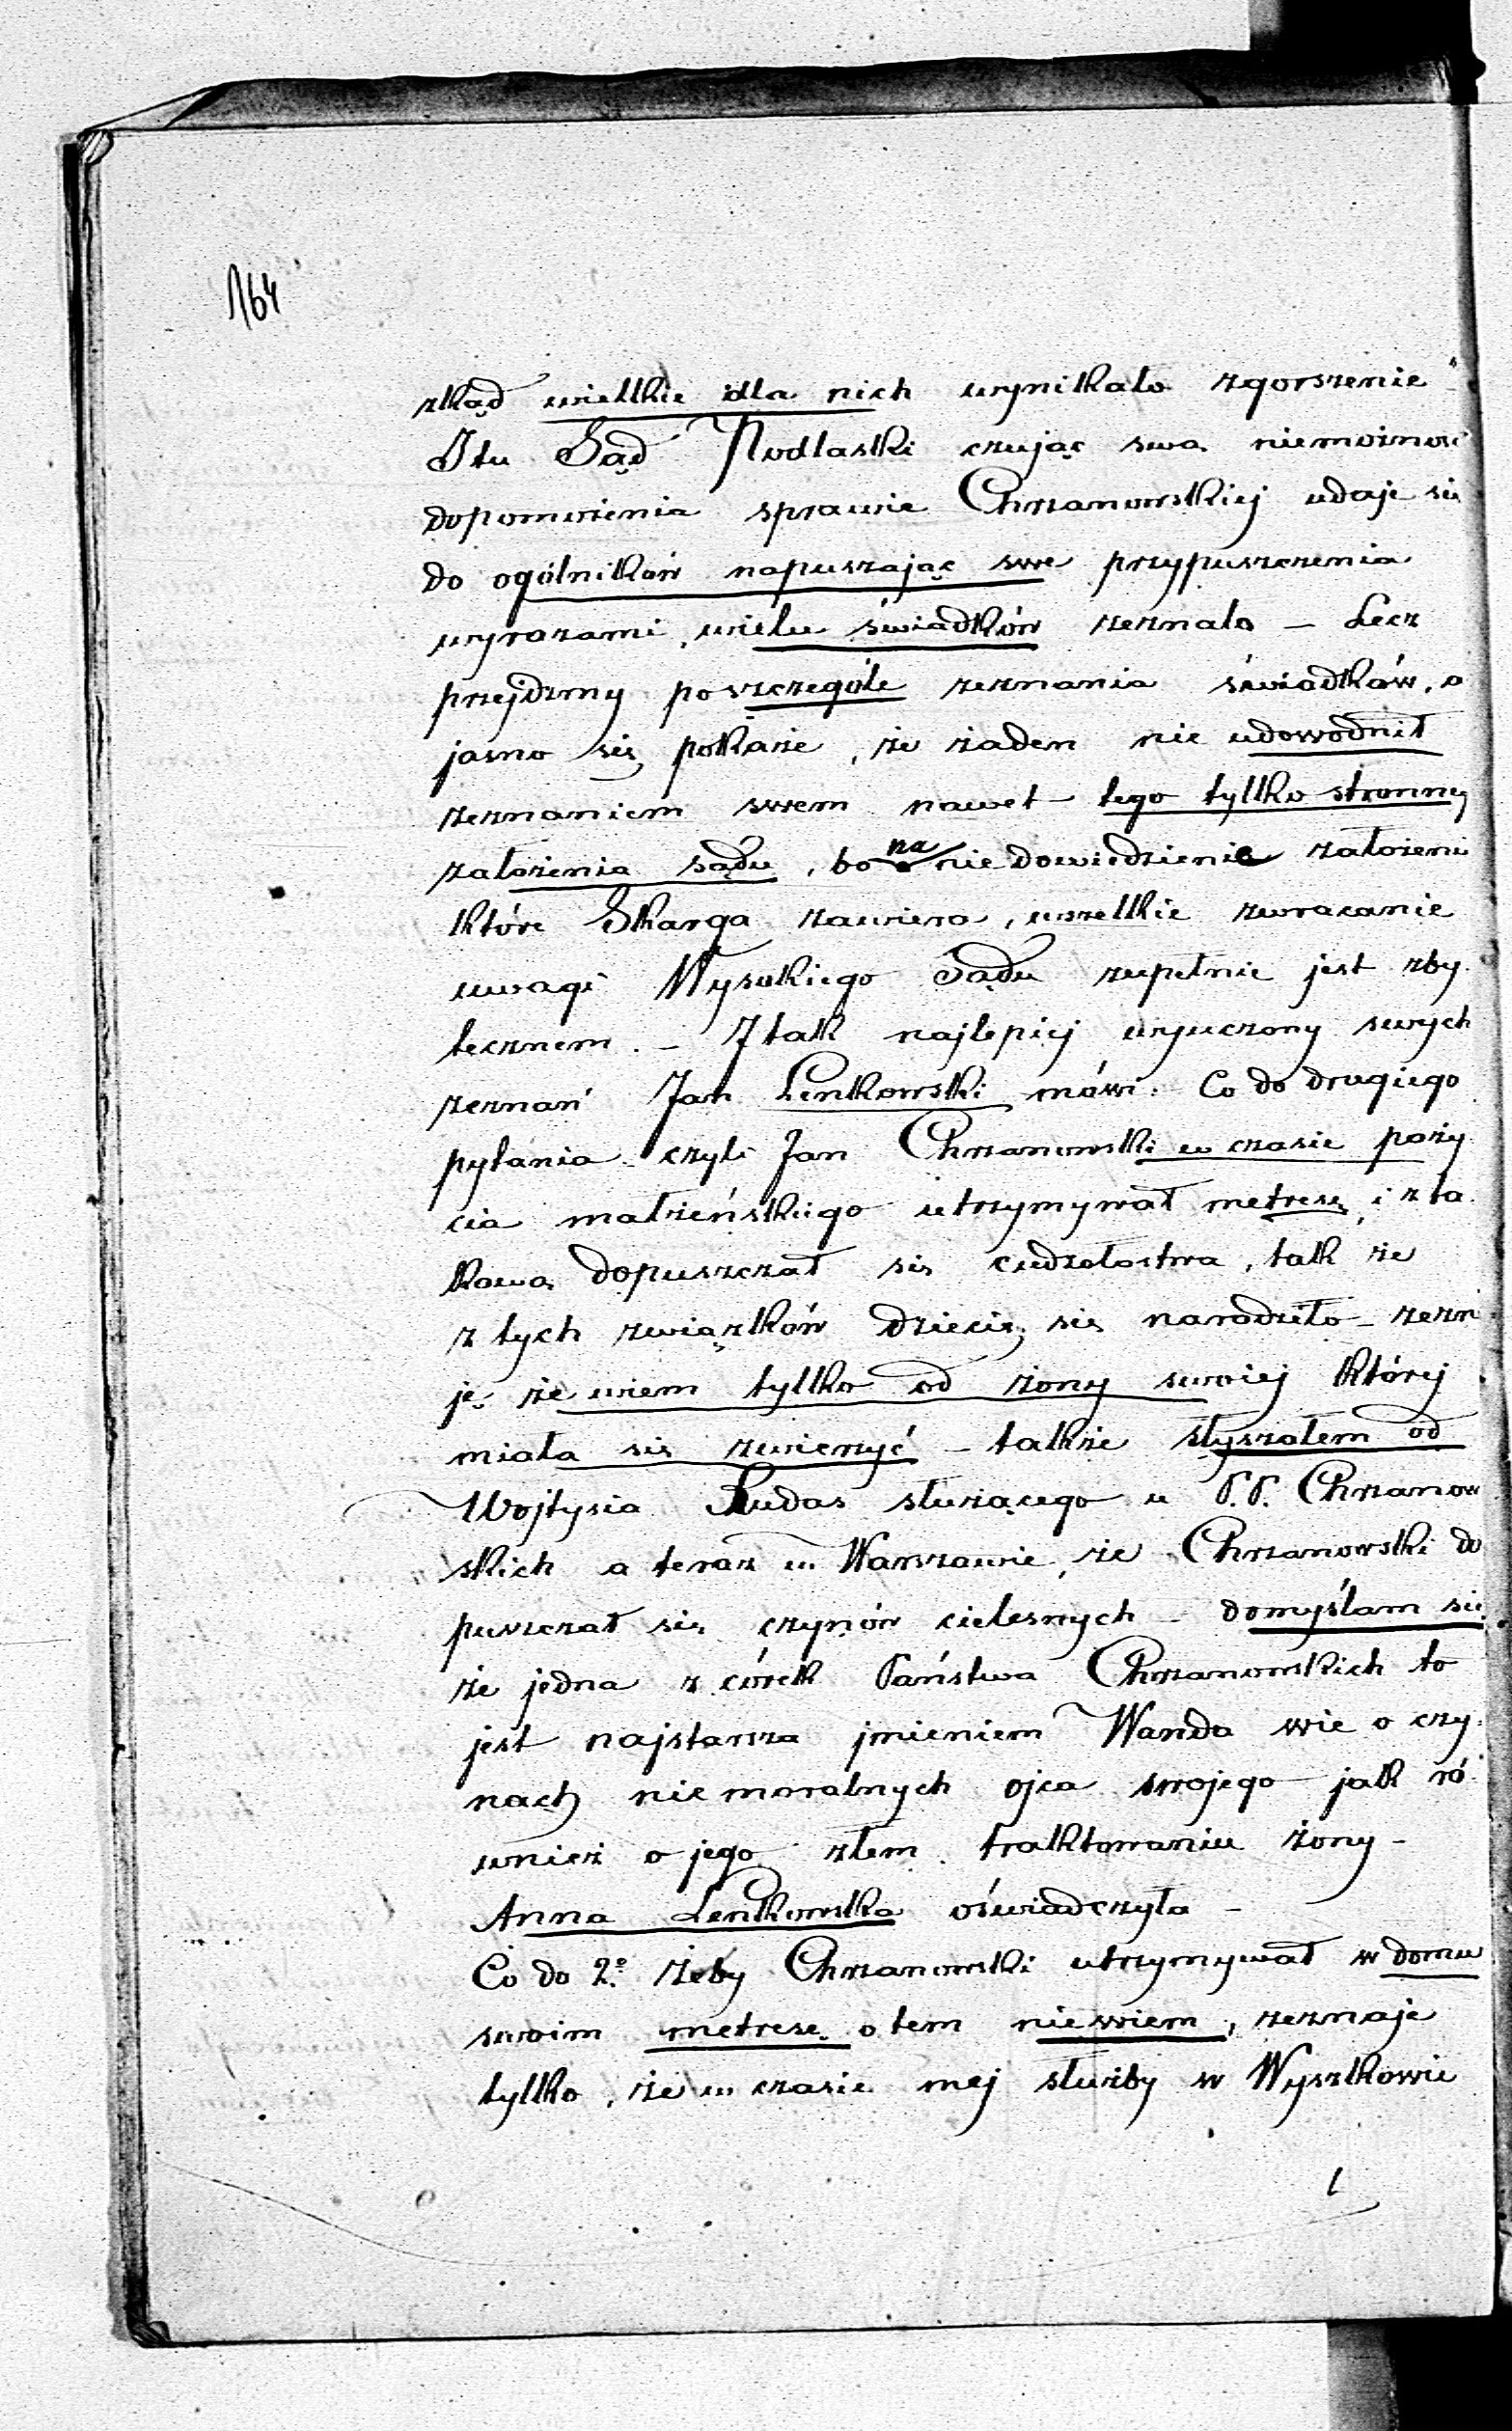 164
zkąd wielkie dla nich wynikało zgorszenie"
I tu Sąd Podlaski czując swą niemożność
dopomożenia sprawie Chrzanowskiej udaje się
do ogólników napuszając swe przypuszczenia
wyrazami, wielu świadków zeznało – Lecz
przejdzmy poszczególe zeznania świadków, a
jasno się pokaże, że żaden nie udowodnił
zeznaniem swem nawet – tego tylko stronnej
założenia sądu, bo na nie dowiedzienie założeni
które Skarga zawiera, wszelkie zwracanie
uwagi Wysokiego Sądu zupełnie jest zby
tecznem. – I tak najlepiej wyuczony swych
zeznań Jan Lenkowski mówi: Co do drugiego
pytania czyli Jan Chrzanowski w czasie poży
cia małżeńskiego utrzymywał metresę i z ta
kową dopuszczał się cudzołostwa, tak że
z tych związków dziecię się narodziło – zezn
ję że wiem tylko od żony swojej której
miała się zwierzyć – także słyszałem od
Wojtysia Rudas służącego u P.P. Chrzanow
skich a teraz w Warszawie, że Chrzanowski do
puszczał się czynów cielesnych – domyślam się
że jedna z córek Państwa Chrzanowskich to
jest najstarsza jmieniem Wanda wie o czy
nach niemoralnych ojca swojego jak ró
wnież o jego złem traktowaniu żony –
Anna Lenkowska oświadczyła –
Co do 2º Żeby Chrzanowski utrzymywał w domu
swoim metresę o tem niewiem, zeznaje
tylko, że w czasie mej służby w Wyszkowie